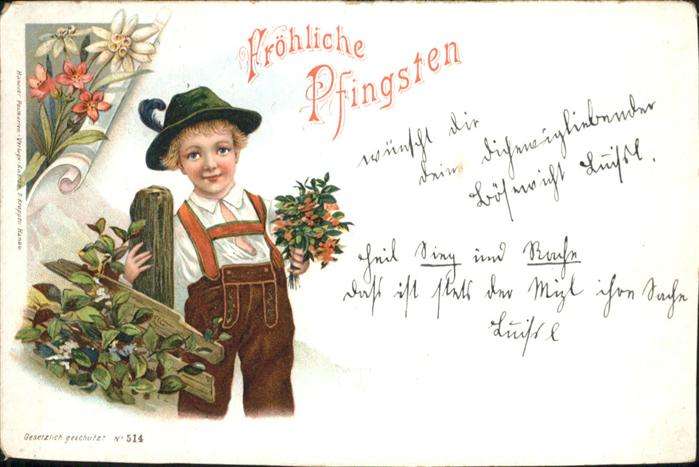 Fröhliche
Pfingsten
wünscht dir
dein dichewigliebender
Bösewicht Luisl.
Heil Sieg und Rache
dass ist stets der Mizl ihre Sache
Luisl
Gesetzlich geschützt! Nº 514